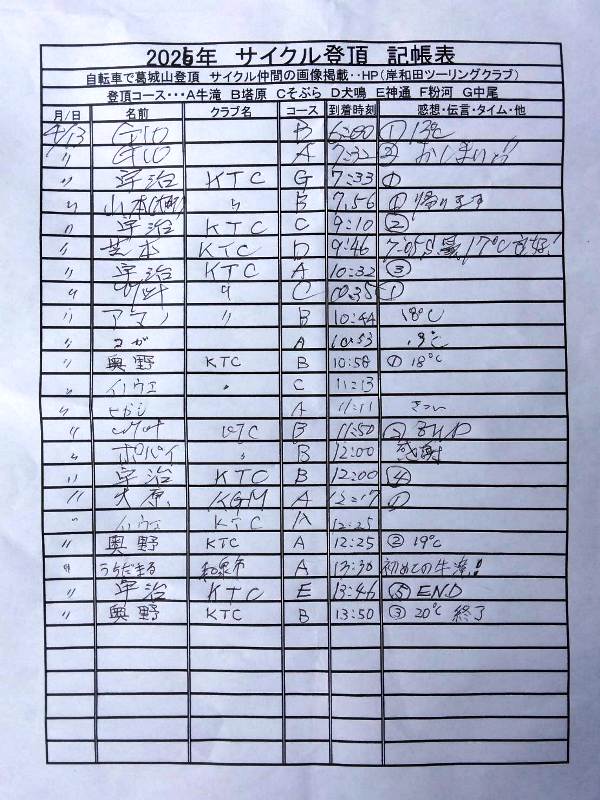 2025年 サイクル登頂 記帳表
自転車で葛城山登頂 サイクル仲間の画像掲載‥HP(岸和田ツーリングクラブ)
登頂コース・・・A牛滝 B塔原 Cそぶら D犬鳴 E神通 F粉河 G中尾
月/日 名前 クラブ名 コース 到着時刻 感想・伝言・タイム・他
4/13 GIO B 6:00 ① 13℃
〃 GIO A 7:32 ② おしまい
〃 宇治 KTC G 7:33 ①
〃 山本 〃 B 7,56 ① 帰ります
〃 宇治 KTC C 9:10 ②
〃 芝本 KTC D 9:46 17℃
〃 宇治 KTC A 10:32 ③
〃 〃 C 10:35 ①
〃 アマノ 〃 B 10:44 18℃
〃 コガ A 10:53 19℃
〃 奥野 KTC B 10:58 ① 18℃
〃 イノウエ C 11:13
〃 ヒガシ A 11:11 きつい
〃 KTC B 11:50 ② END
〃 ポパイ 〃 B 12:00 感謝
〃 宇治 KTC B 12:00 ④
〃 大原 KGM A 12:17 ①
〃 イノウエ KTC A 12:25
〃 奥野 KTC A 12:25 ② 19℃
〃 うちだまる 和泉市 A 13:30 初めての牛滝!
〃 宇治 KTC E 13:46 ⑤ END
〃 奥野 KTC B 13:50 ③ 20℃ 終了